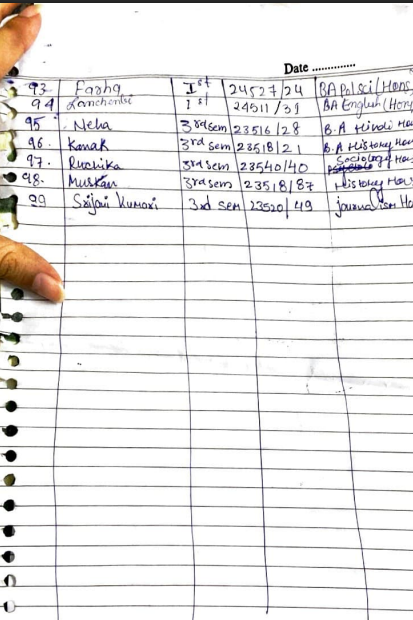 Date ..............
93 Farha Ist 24527/24 BA Pol sci (Hons
94 1st 24511/31 BA English (Hons
95 Neha 3rd sem 23516/28 B.A Hindi Hon
96. Kanak 3rd sem 23518/21 B.A History Hon
97. Ruchika 3rd sem 23540/40 Sociology Hons
98. Muskan 3rd sem 23518/87 History Hons
99 Srijani Kumari 3rd sem 23520/49 journalism Ho